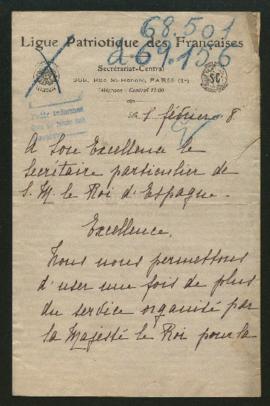 68.501
à 69.150
Ligue Patriotique des Françaises
Secrétariat-Central
368, Rue St-Honoré, PARIS (1er)
Téléphone : Central 12-00
février 8
A Son Excellence le
Secrétaire particulier de
S. M. le Roi d'Espagne.
Excellence,
Nous nous permettons
d'user une fois de plus
du service organisé par
sa Majesté le Roi pour la